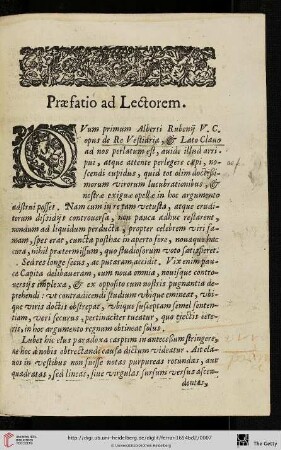 Præfatio ad Lectorem.
QVum primum Alberti Rubenij V. C.
opus de Re Vestiaria, & Lato Clavo
ad nos perlatum est, avidè illud arri-
pui, atque attente perlegere cœpi, no-
scendi cupidus, quid tot olim doctissi-
morum virorum lucubrationibus, &
nostræ exiguæ opellæ in hoc argumento
adstrui posset. Nam cum in re tam vetusta, atque erudi-
torum dissidijs controversa, non pauca adhuc restarent,
nondum ad liquidum perducta, propter celebrem viri fa-
mam, spes erat, cuncta posthac in aperto fore, nonaquo jud
cura, nihil prætermissum, quo studiosorum voto satisfieret.
Sed res longe secus, ac putaram, accidit. Vix enim pau-
ca Capita delibaveram, cum nova omnia, novisque contro-
versijs implexa, & ex opposito cum nostris pugnantia de-
prehendi: ut contradicendi studium ubique emineat, ubi-
que viris doctis obstrepat, ubique susceptam semel senten-
tiam, veri securus, pertinaciter tueatur, quo ejectis cete-
ris, in hoc argumento regnum obtineat solus.
Lubet hic ejus paradoxa carptim in antecessum stringere,
ne hoc à nobis obtrectandi causa dictum videatur. Ait cla-
vos in vestibus non fuisse notas purpureas rotundas, aut
quadratas, sed lineas, sive virgulas sursum versus ascen-
dentes,
http://digi.ub.uni-heidelberg.de/diglit/ferrari1654bd2/0007
© Universitätsbibliothek Heidelberg
The Getty